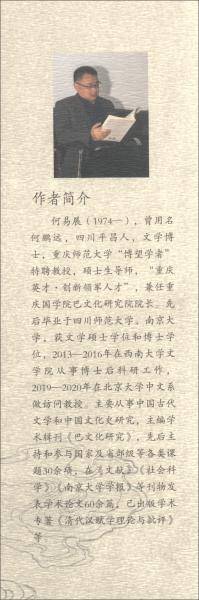 作者简介
何易展(1974—),曾用名
何鹏远,四川平昌人,文学博
士,重庆师范大学“博望学者”
特聘教授,硕士生导师,“重庆
英才·创新领军人才”,兼任重
庆国学院巴文化研究院院长。先
后毕业于四川师范大学、南京大
学,获文学硕士学位和博士学
位,2013—2016年在西南大学文
学院从事博士后科研工作,
2019—2020年在北京大学中文系
做访问教授。主要从事中国古代
文学和中国文化史研究,主编学
术辑刊《巴文化研究》,先后主
持和参与国家及省部级等各类课
题30余项,在《文献》《社会科
学》《南京大学学报》等刊物发
表学术论文60余篇,已出版学术
专著《清代汉赋学理论与批评》
等